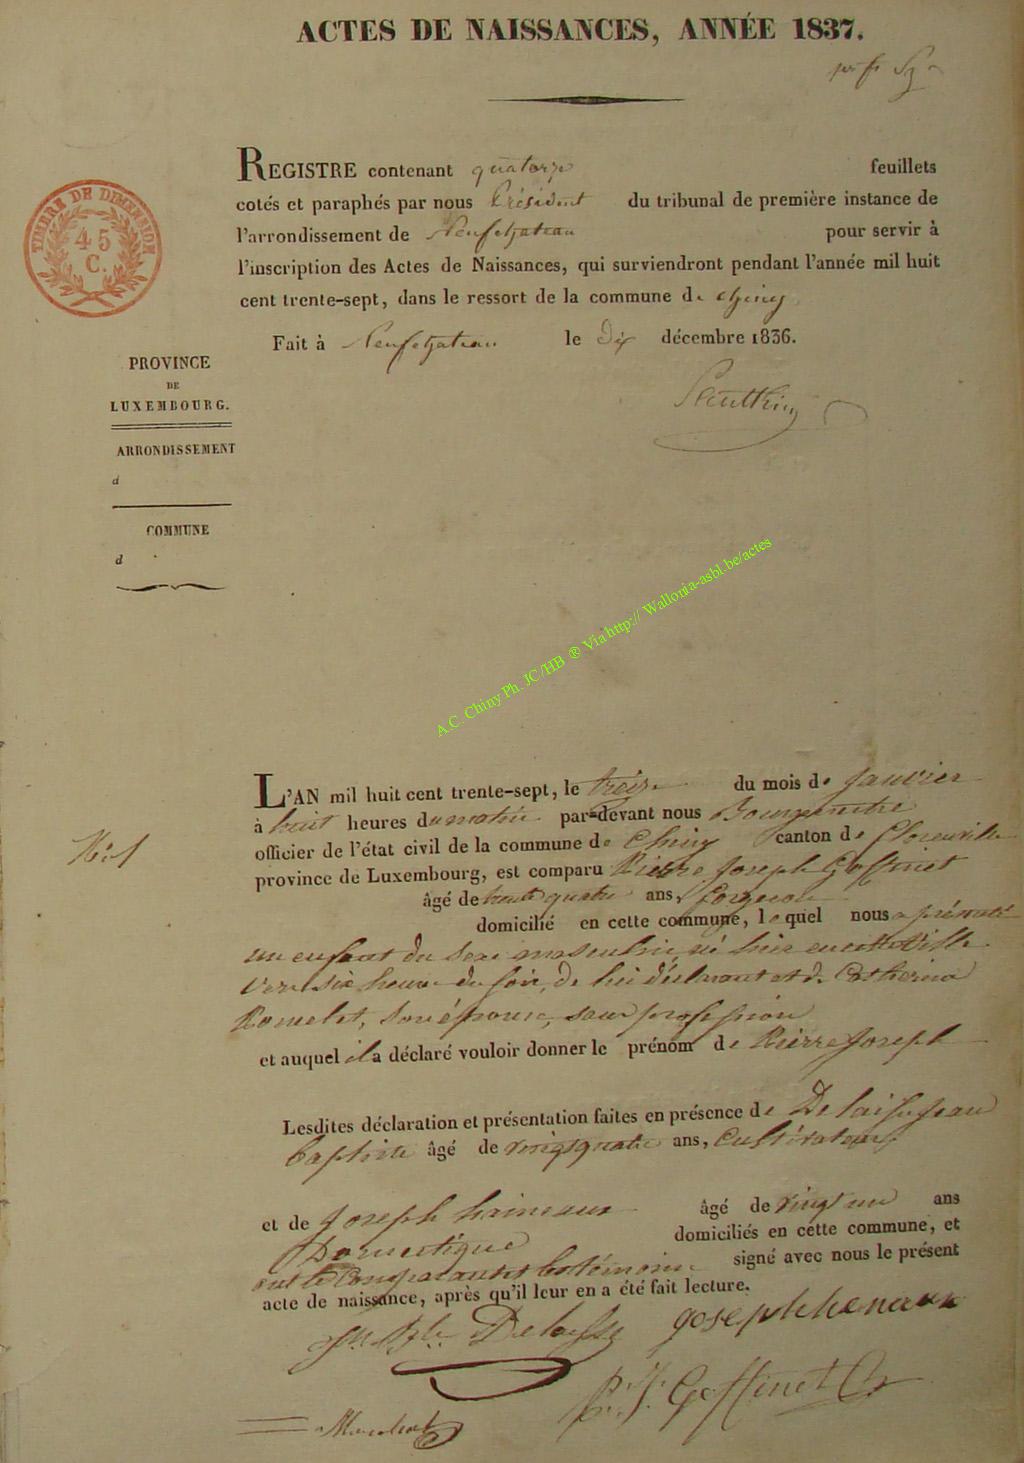 ACTES DE NAISSANCES, ANNÉE 1837.
REGISTRE contenant quatorze feuillets
cotés et paraphés par nous Président du tribunal de première instance de
l'arrondissement de Neufchateau pour servir à
l'inscription des Actes de Naissances, qui surviendront pendant l'année mil huit
cent trente-sept, dans le ressort de la commune de Chiny
Fait à Neufchateau le Dix décembre 1836.
TIMBRE DE DIMENSION
45
C.
PROVINCE
DE
LUXEMBOURG.
ARRONDISSEMENT
d
COMMUNE
d
A.C. Chiny Ph. JC/HB ® Via http:// Wallonia-asbl.be/actes
L'AN mil huit cent trente-sept, le treize du mois de Janvier
à huit heures du matin par-devant nous Bourgmestre
officier de l'état civil de la commune de Chiny canton de Florenville
province de Luxembourg, est comparu Pierre Joseph Goffinet
âgé de trente quatre ans, forgeron
domicilié en cette commune, lequel nous a présenté
un enfant du sexe masculin, né hier en cette ville
vers six heures du soir, de lui déclarant et de Catherine
Romelet, son épouse, sans profession
et auquel il a déclaré vouloir donner le prénom de Pierre Joseph
Lesdites déclaration et présentation faites en présence de Delaisse Jean
baptiste âgé de vingt quatre ans, Cultivateur,
et de Joseph hainaux âgé de vingt un ans
Domestique domiciliés en cette commune, et
ont le Comparant et les témoins signé avec nous le présent
acte de naissance, après qu'il leur en a été fait lecture.
Jn Bte Delaisse Joseph henaux
P. J. Goffinet